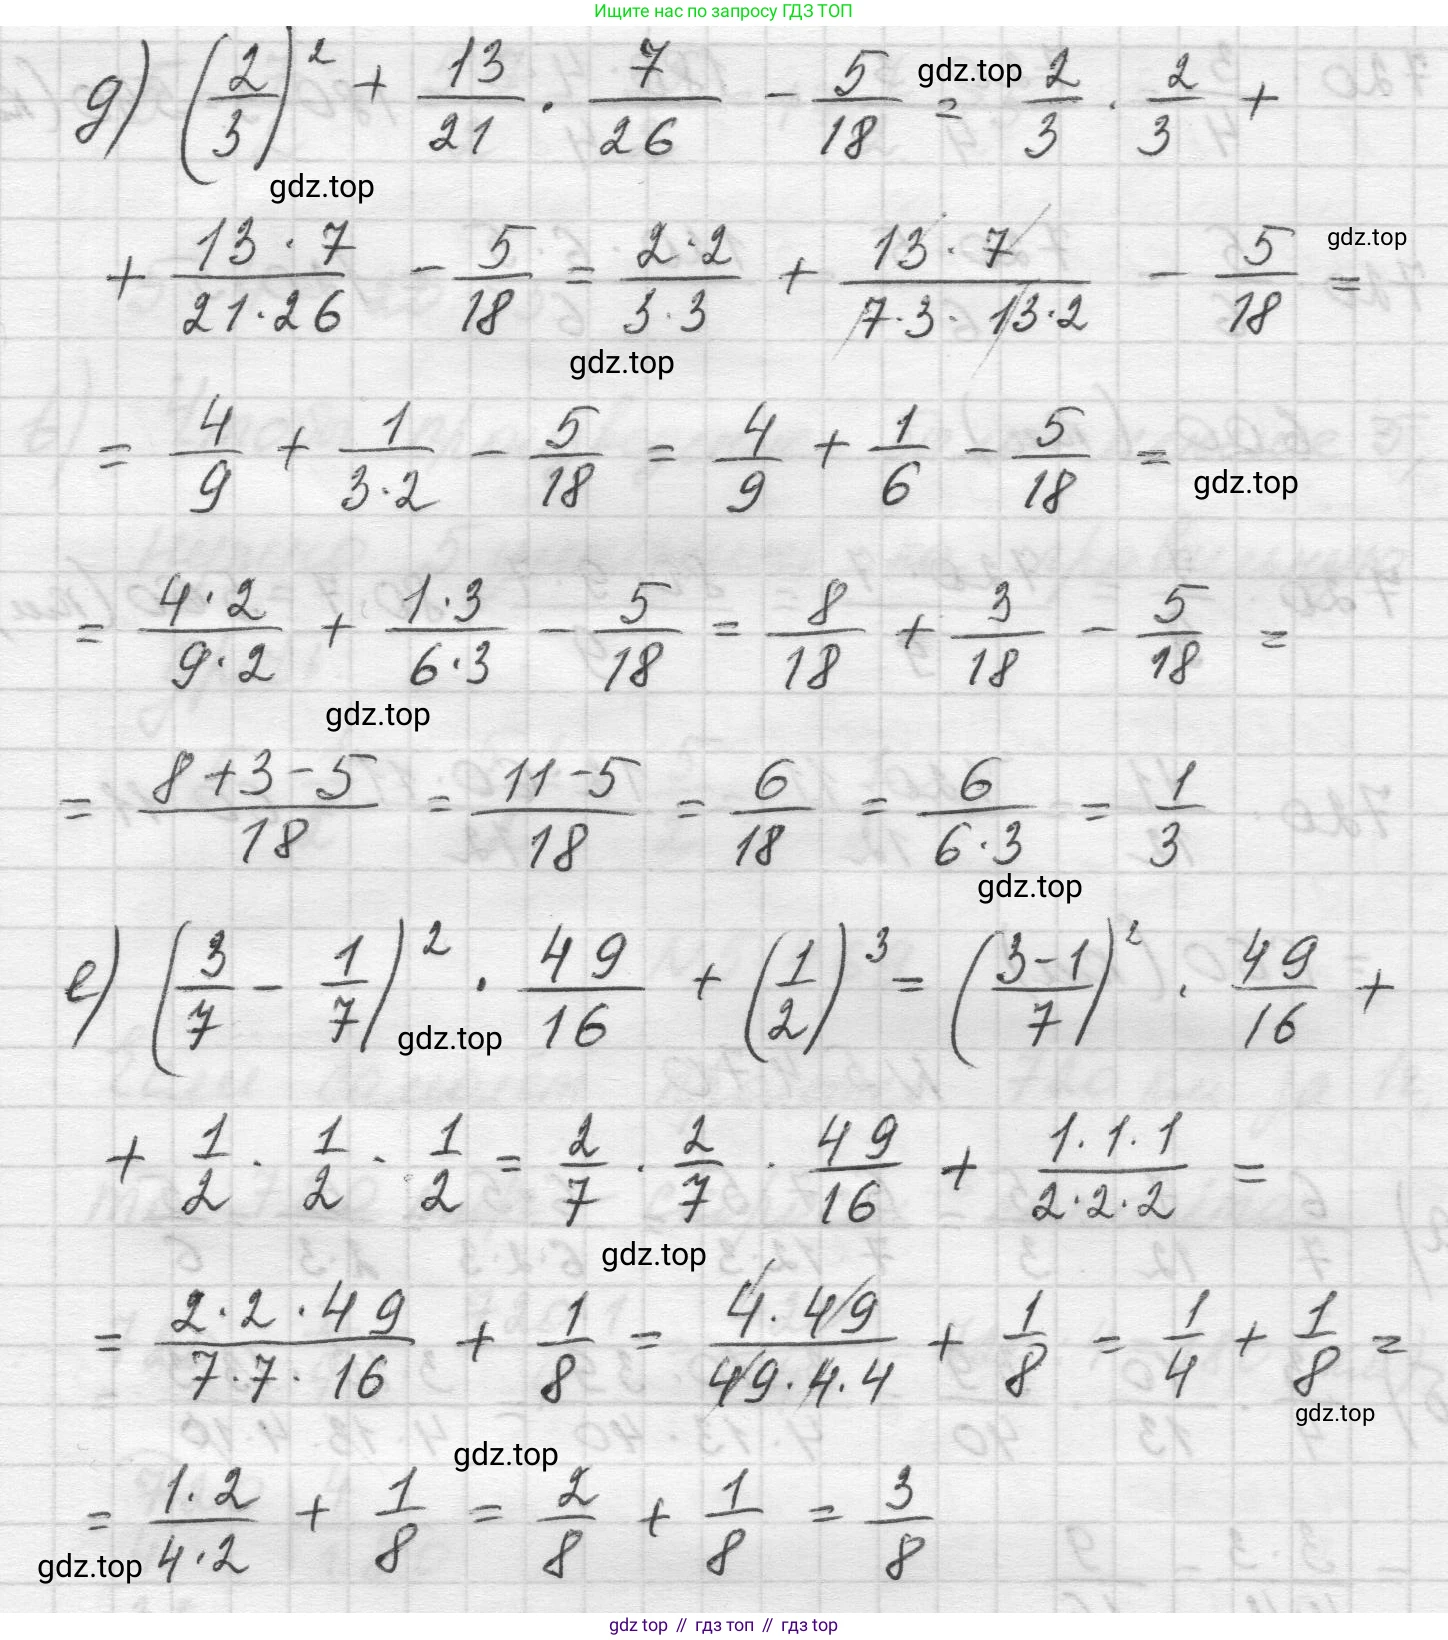 Ищите нас по запросу ГДЗ ТОП
д) (2/3)² + 13/21 · 7/26 - 5/18 = 2/3 · 2/3 +
gdz.top
gdz.top
+ (13·7)/(21·26) - 5/18 = (2·2)/(3·3) + (13·7)/(7·3·13·2) - 5/18 =
gdz.top
gdz.top
= 4/9 + 1/(3·2) - 5/18 = 4/9 + 1/6 - 5/18 =
gdz.top
= (4·2)/(9·2) + (1·3)/(6·3) - 5/18 = 8/18 + 3/18 - 5/18 =
gdz.top
= (8+3-5)/18 = (11-5)/18 = 6/18 = 6/(6·3) = 1/3
gdz.top
е) (3/7 - 1/7)² · 49/16 + (1/2)³ = ((3-1)/7)² · 49/16 +
gdz.top
+ 1/2 · 1/2 · 1/2 = 2/7 · 2/7 · 49/16 + (1·1·1)/(2·2·2) =
gdz.top
= (2·2·49)/(7·7·16) + 1/8 = (4·49)/(49·4·4) + 1/8 = 1/4 + 1/8 =
gdz.top
gdz.top
= (1·2)/(4·2) + 1/8 = 2/8 + 1/8 = 3/8
gdz.top
gdz top // гдз топ // гдз top